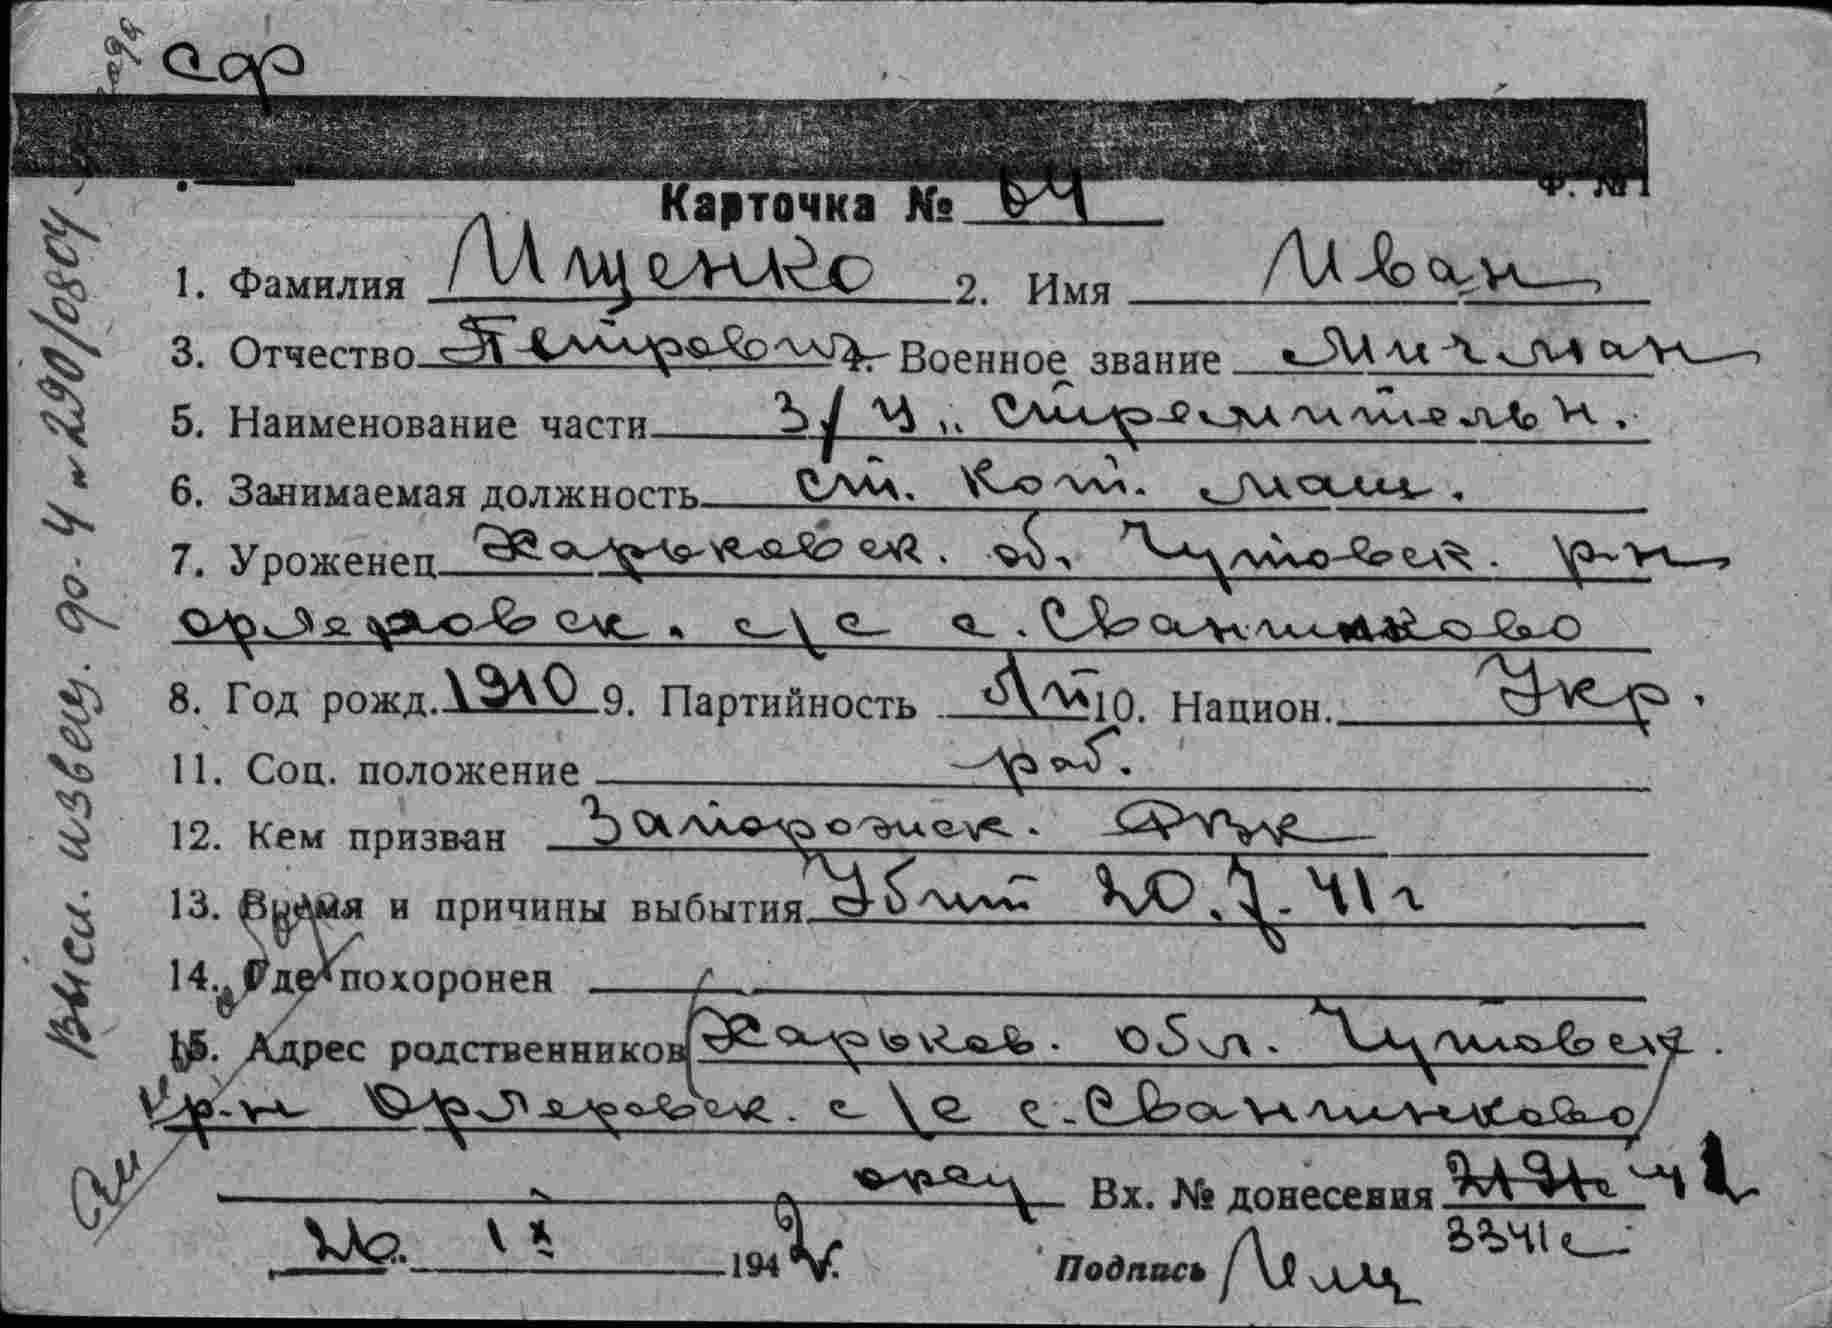 сдр
Карточка № 64
Ф. №1
1. Фамилия Ищенко 2. Имя Иван
3. Отчество Петрович 4. Военное звание Мичман
5. Наименование части Э/М „Стремительн.
6. Занимаемая должность ст. кот. маш.
7. Уроженец Харьковск. об. Чутовск. р-н
с/с с. Сванчиково
8. Год рожд. 1910 9. Партийность 10. Национ. Укр.
11. Соц. положение раб.
12. Кем призван Запорожск. РВК
13. Время и причины выбытия Убит 20.7.41 г
14. Где похоронен
15. Адрес родственников Харьков. обл. Чутовск.
р-н с/с с. Сванчиково
отец Вх. № донесения
3341с
26. IX 1942 г. Подпись
Высл. извещ. до. Ч „290/080СЧ